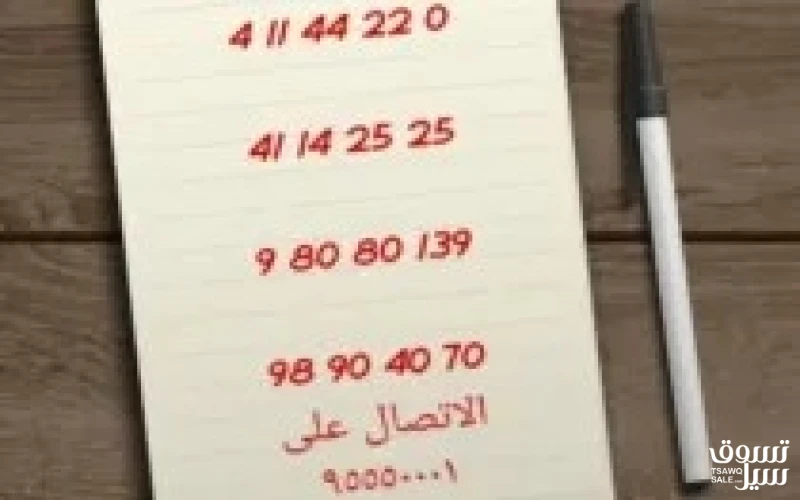 4 11 44 22 0
41 14 25 25
9 80 80 139
98 90 40 70
الاتصال على
٩٥٥٥٠٠٠١
تسوق
TSAWQ
SALE.com
سيل